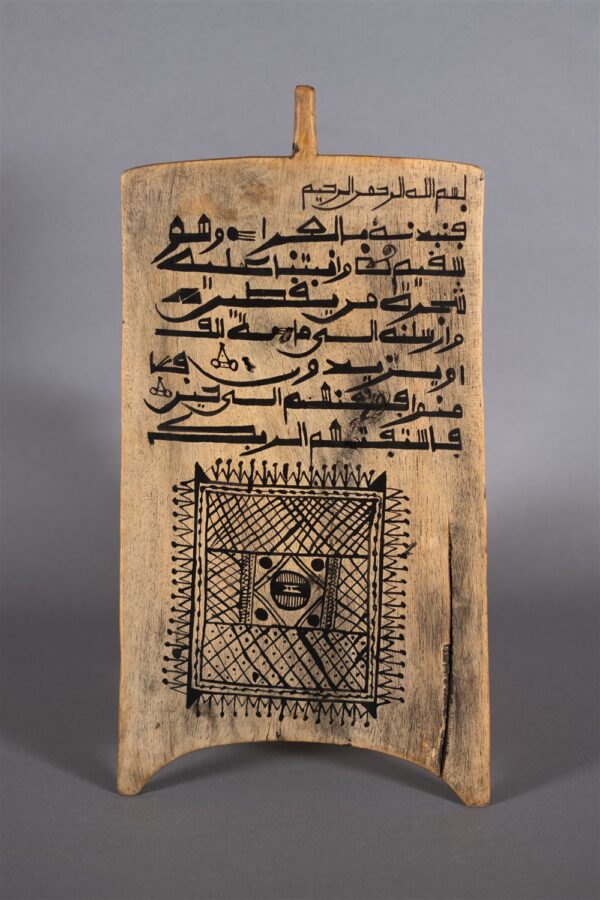 بسم الله الرحمن الرحيم
فنبذنه بالعراء وهو
سقيم وانبتنا عليه
شجرة من يقطين
وارسلنه الى مائة الف
او يزيدون فا
منوا فمتعنهم الى حين
فاستفتهم الربك